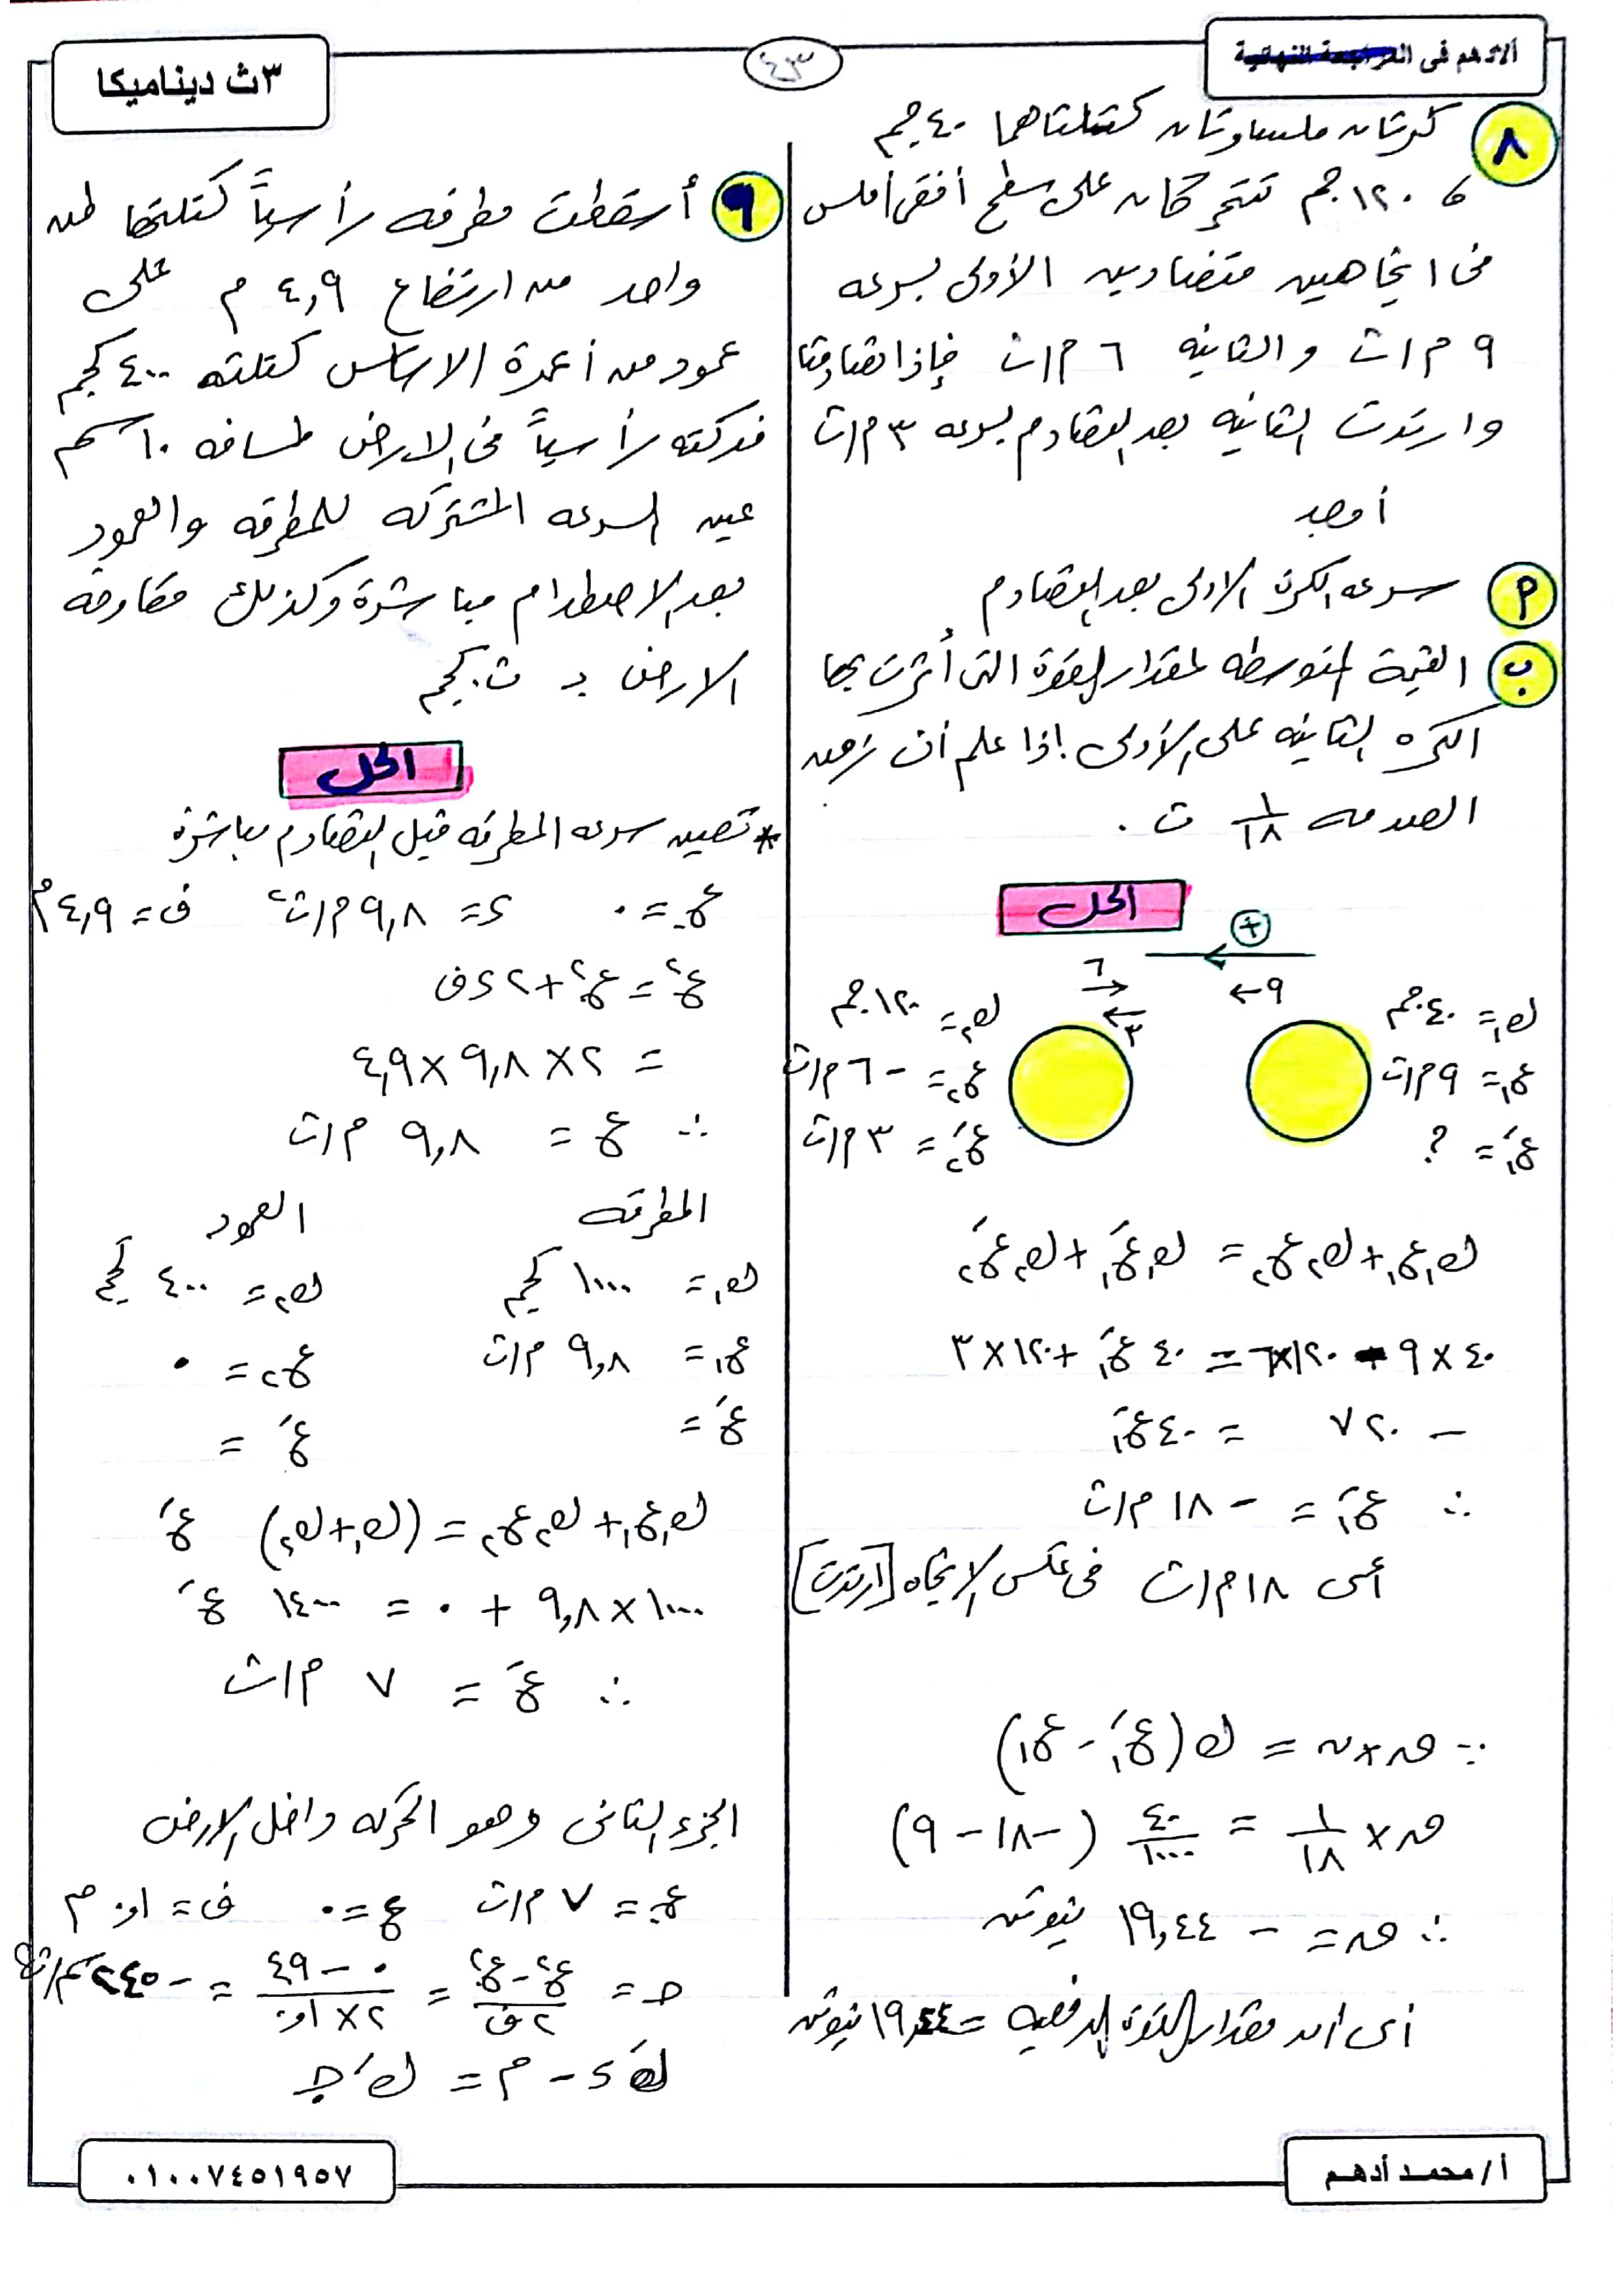 الأدهم فى المراجعة النهائية
٤٣
٣ث ديناميكا
٨ كرتان ملساوتان كتلتاهما ٤٠ جم
، ١٢٠ جم تتحركان على سطح أفقى أملس
فى اتجاهين متضادين الأولى بسرعه
٩ م/ث والثانيه ٦ م/ث فإذا تصادمتا
وارتدت الثانيه بعد التصادم بسرعه ٣ م/ث
أوجد
P سرعه الكرة الاولى بعد التصادم
ب القيمة المتوسطه لمقدار القوة التى أثرت بها
الكره الثانيه على الأولى إذا علم أن زمن
الصدمه ١/١٨ ث .
الحل
+
٩ ←
٦ →
٣ ←
ك١ = ٤٠ جم
ع١ = ٩ م/ث
ع١َ = ؟
ك٢ = ١٢٠ جم
ع٢ = - ٦ م/ث
ع٢َ = ٣ م/ث
ك١ع١ + ك٢ع٢ = ك١ع١َ + ك٢ع٢َ
٤٠ × ٩ - ١٢٠ × ٦ = ٤٠ ع١َ + ١٢٠ × ٣
- ٧٢٠ = ٤٠ ع١َ
∴ ع١َ = - ١٨ م/ث
أى ١٨ م/ث فى عكس الاتجاه [ارتدت]
∵ ق × ن = ك (ع١َ - ع١)
ق × ١/١٨ = ٤٠/١٠٠٠ (- ١٨ - ٩)
∴ ق = - ١٩,٤٤ نيوتن
أى أن مقدار القوة الدفعيه = ١٩,٤٤ نيوتن
٩ أسقطت مطرقه رأسياً كتلتها طن
واحد من ارتفاع ٤,٩ م على
عمود من أعمدة الاساس كتلته ٤٠٠ كجم
فدكته رأسياً فى الارض لمسافه ١٠ سم
عين السرعه المشتركه للمطرقه والعمود
بعد الاصطدام مباشرة وكذلك مقاومة
الارض بـ ث.كجم
الحل
* تعيين سرعه المطرقه قبل التصادم مباشرة
ع. = ٠ ء = ٩,٨ م/ث٢ ف = ٤,٩ م
ع٢ = ع.٢ + ٢ ء ف
= ٢ × ٩,٨ × ٤,٩
∴ ع = ٩,٨ م/ث
المطرقه العمود
ك١ = ١٠٠٠ كجم ك٢ = ٤٠٠ كجم
ع١ = ٩,٨ م/ث ع٢ = ٠
عَ = عَ =
ك١ع١ + ك٢ع٢ = (ك١ + ك٢) عَ
١٠٠٠ × ٩,٨ + ٠ = ١٤٠٠ عَ
∴ عَ = ٧ م/ث
الجزء الثانى وهو الحركه داخل الارض
ع. = ٧ م/ث ع = ٠ ف = ٠,١ م
جـ = (ع٢ - ع.٢)/(٢ ف) = (٠ - ٤٩)/(٢ × ٠,١) = - ٢٤٥
كَ ء - م = كَ جـ
أ/ محمد أدهم
٠١٠٠٧٤٥١٩٥٧